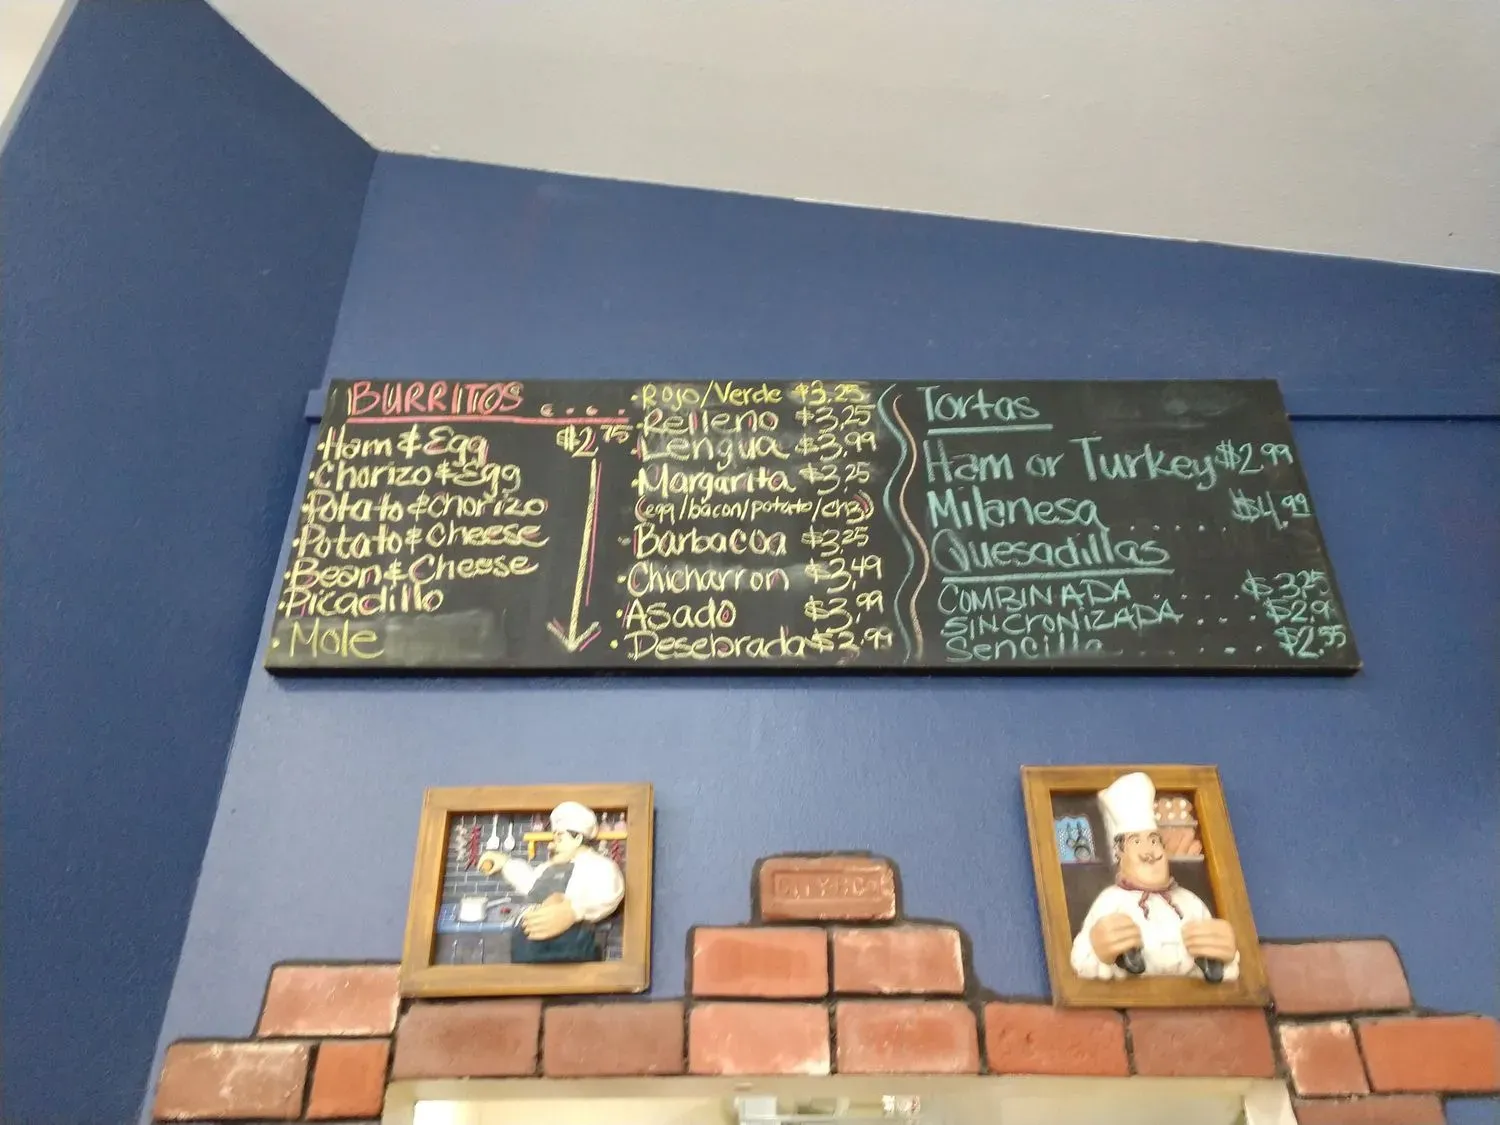 BURRITOS . . . .
• Ham & Egg $2.75
• Chorizo & Egg
• Potato & chorizo
• Potato & Cheese
• Bean & Cheese
• Picadillo
• Mole
• Rojo/Verde $3.25
• Relleno $3.25
• Lengua $3.99
• Margarita $3.25
(egg/bacon/potato/
• Barbacoa $3.25
• Chicharron $3.49
• Asado $3.99
• Desebrada $2.99
Tortas
Ham or Turkey $2.99
Milanesa ...... $4.99
Quesadillas
COMBINADA ..... $3.25
SINCRONIZADA ...
Sencilla